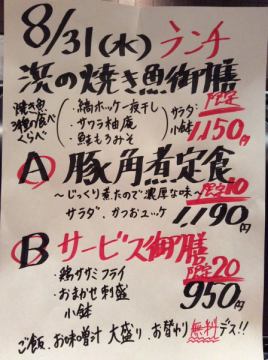 8/31(水) ランチ
浜の焼き魚御膳
焼き魚
3種の食べ
くらべ
・縞ホッケ一夜干し
・サワラ柚庵
・鮭もろみそ
サラダ・
小鉢
限定
1,150円
A 豚角煮定食
〜じっくり煮たので濃厚な味〜 限定10
サラダ、かつおユッケ 1,190円
B サービス御膳
限定20
・鶏ササミフライ
・おまかせ刺盛
・小鉢
950円
ご飯、お味噌汁 大盛り、お替わり 無料デス!!